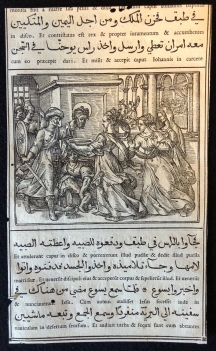 في طبق فحزن الملك ومن اجل اليمين والمتكيين
in disco. Et contristatus est rex & propter iuramentum & accumbentes
معه امر ان تعطي وارسل واخذ راس يوحنا في السجن
cum eo præcepit dari. Et misit & accepit caput Iohannis in carcere
فجاوا بالراس في طبق ودفعوه للصبيه واعطته الصبيه
Et attulerunt caput in disco & porrexerunt illud puellæ & dedit illud puella
لامها وجا تلاميذه واخذوا الجسد فدفنوه واتوا
matri suæ. Et uenerunt discipuli eius & acceperunt corpus & sepelierunt illud. Et uenerunt
واخبروا يسوع فلما سمع يسوع مضي من هناك في
& nunciauerunt Iesu. Cum autem audisset Iesus secessit inde in
سفينه الي البريه منفردا وسمع الجمع وتبعه ماشيين
nauiculam in desertum seorsum. Et audiuit turba & secuti sunt eum